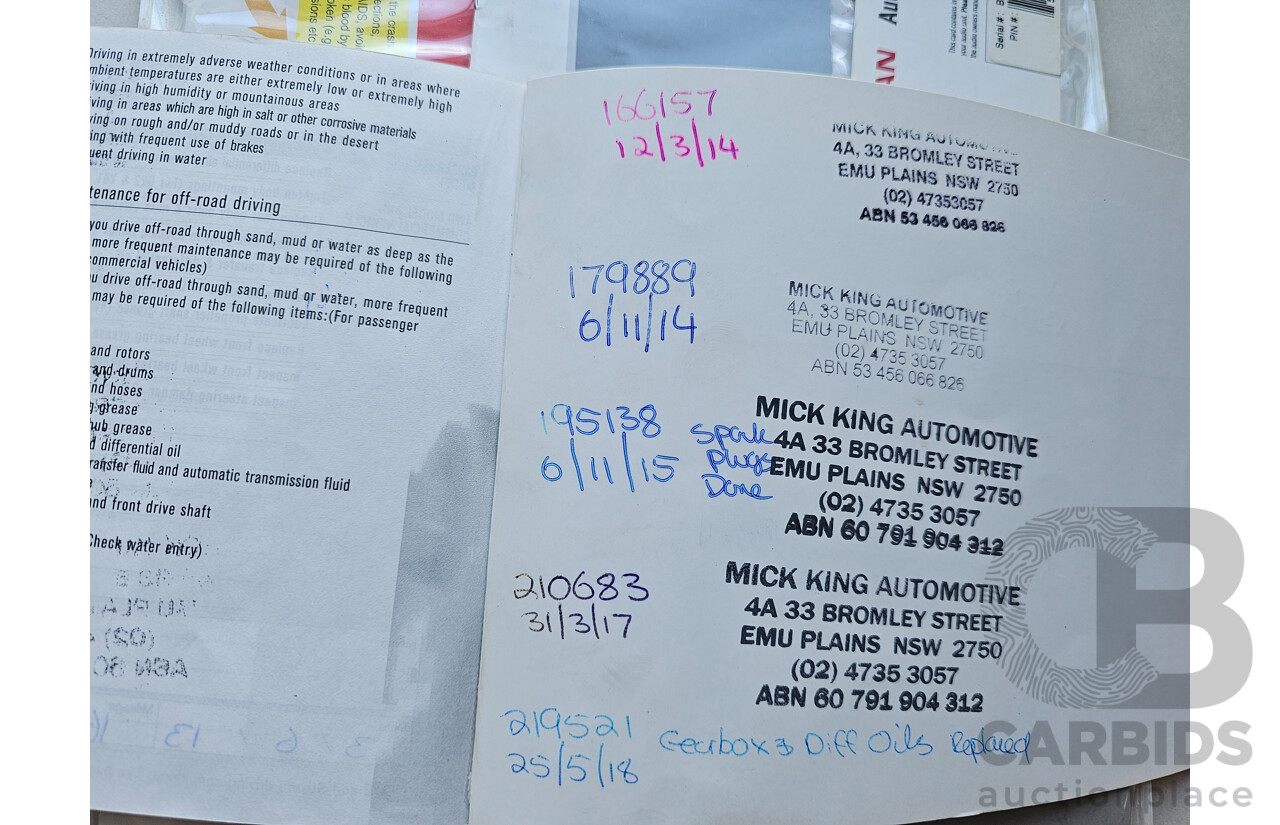 the crash
ections,
AIDS, avoid
blood by
oken (e.g
sions etc
AN
Au
PIN #:
Serial #:
Driving in extremely adverse weather conditions or in areas where
mbient temperatures are either extremely low or extremely high
iving in high humidity or mountainous areas
iving in areas which are high in salt or other corrosive materials
ving on rough and/or muddy roads or in the desert
ing with frequent use of brakes
uent driving in water
tenance for off-road driving
you drive off-road through sand, mud or water as deep as the
more frequent maintenance may be required of the following
commercial vehicles)
u drive off-road through sand, mud or water, more frequent
may be required of the following items:(For passenger
and rotors
and drums
nd hoses
g grease
ub grease
d differential oil
ransfer fluid and automatic transmission fluid
nd front drive shaft
Check water entry)
166157
12/3/14
MICK KING AUTOMOTIVE
4A, 33 BROMLEY STREET
EMU PLAINS NSW 2750
(02) 47353057
ABN 53 456 066 826
179889
6/11/14
MICK KING AUTOMOTIVE
4A, 33 BROMLEY STREET
EMU PLAINS NSW 2750
(02) 4735 3057
ABN 53 456 066 826
195138
6/11/15
Spark
plugs
Done
MICK KING AUTOMOTIVE
4A 33 BROMLEY STREET
EMU PLAINS NSW 2750
(02) 4735 3057
ABN 60 791 904 312
210683
31/3/17
MICK KING AUTOMOTIVE
4A 33 BROMLEY STREET
EMU PLAINS NSW 2750
(02) 4735 3057
ABN 60 791 904 312
219521
25/5/18
Gearbox & Diff Oils Replaced
CARBIDS
auctionplace